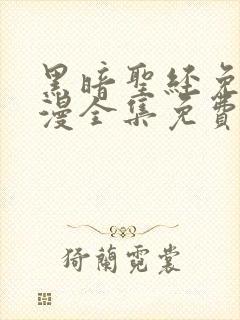 黑暗聖經免
漫全集免費
猗蘭霓裳